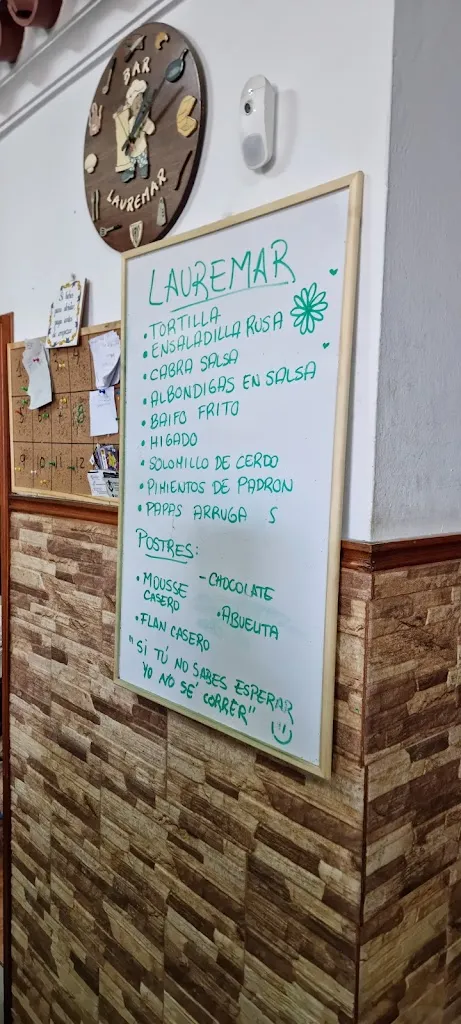 BAR
LAUREMAR
LAUREMAR
• TORTILLA
• ENSALADILLA RUSA
• CABRA SALSA
• ALBONDIGAS EN SALSA
• BAIFO FRITO
• HIGADO
• SOLOMILLO DE CERDO
• PIMIENTOS DE PADRON
• PAPAS ARRUGA S
POSTRES:
• MOUSSE CASERO
- CHOCOLATE
• ABUELITA
• FLAN CASERO
"SI TÚ NO SABES ESPERAR
YO NO SÉ CORRER"